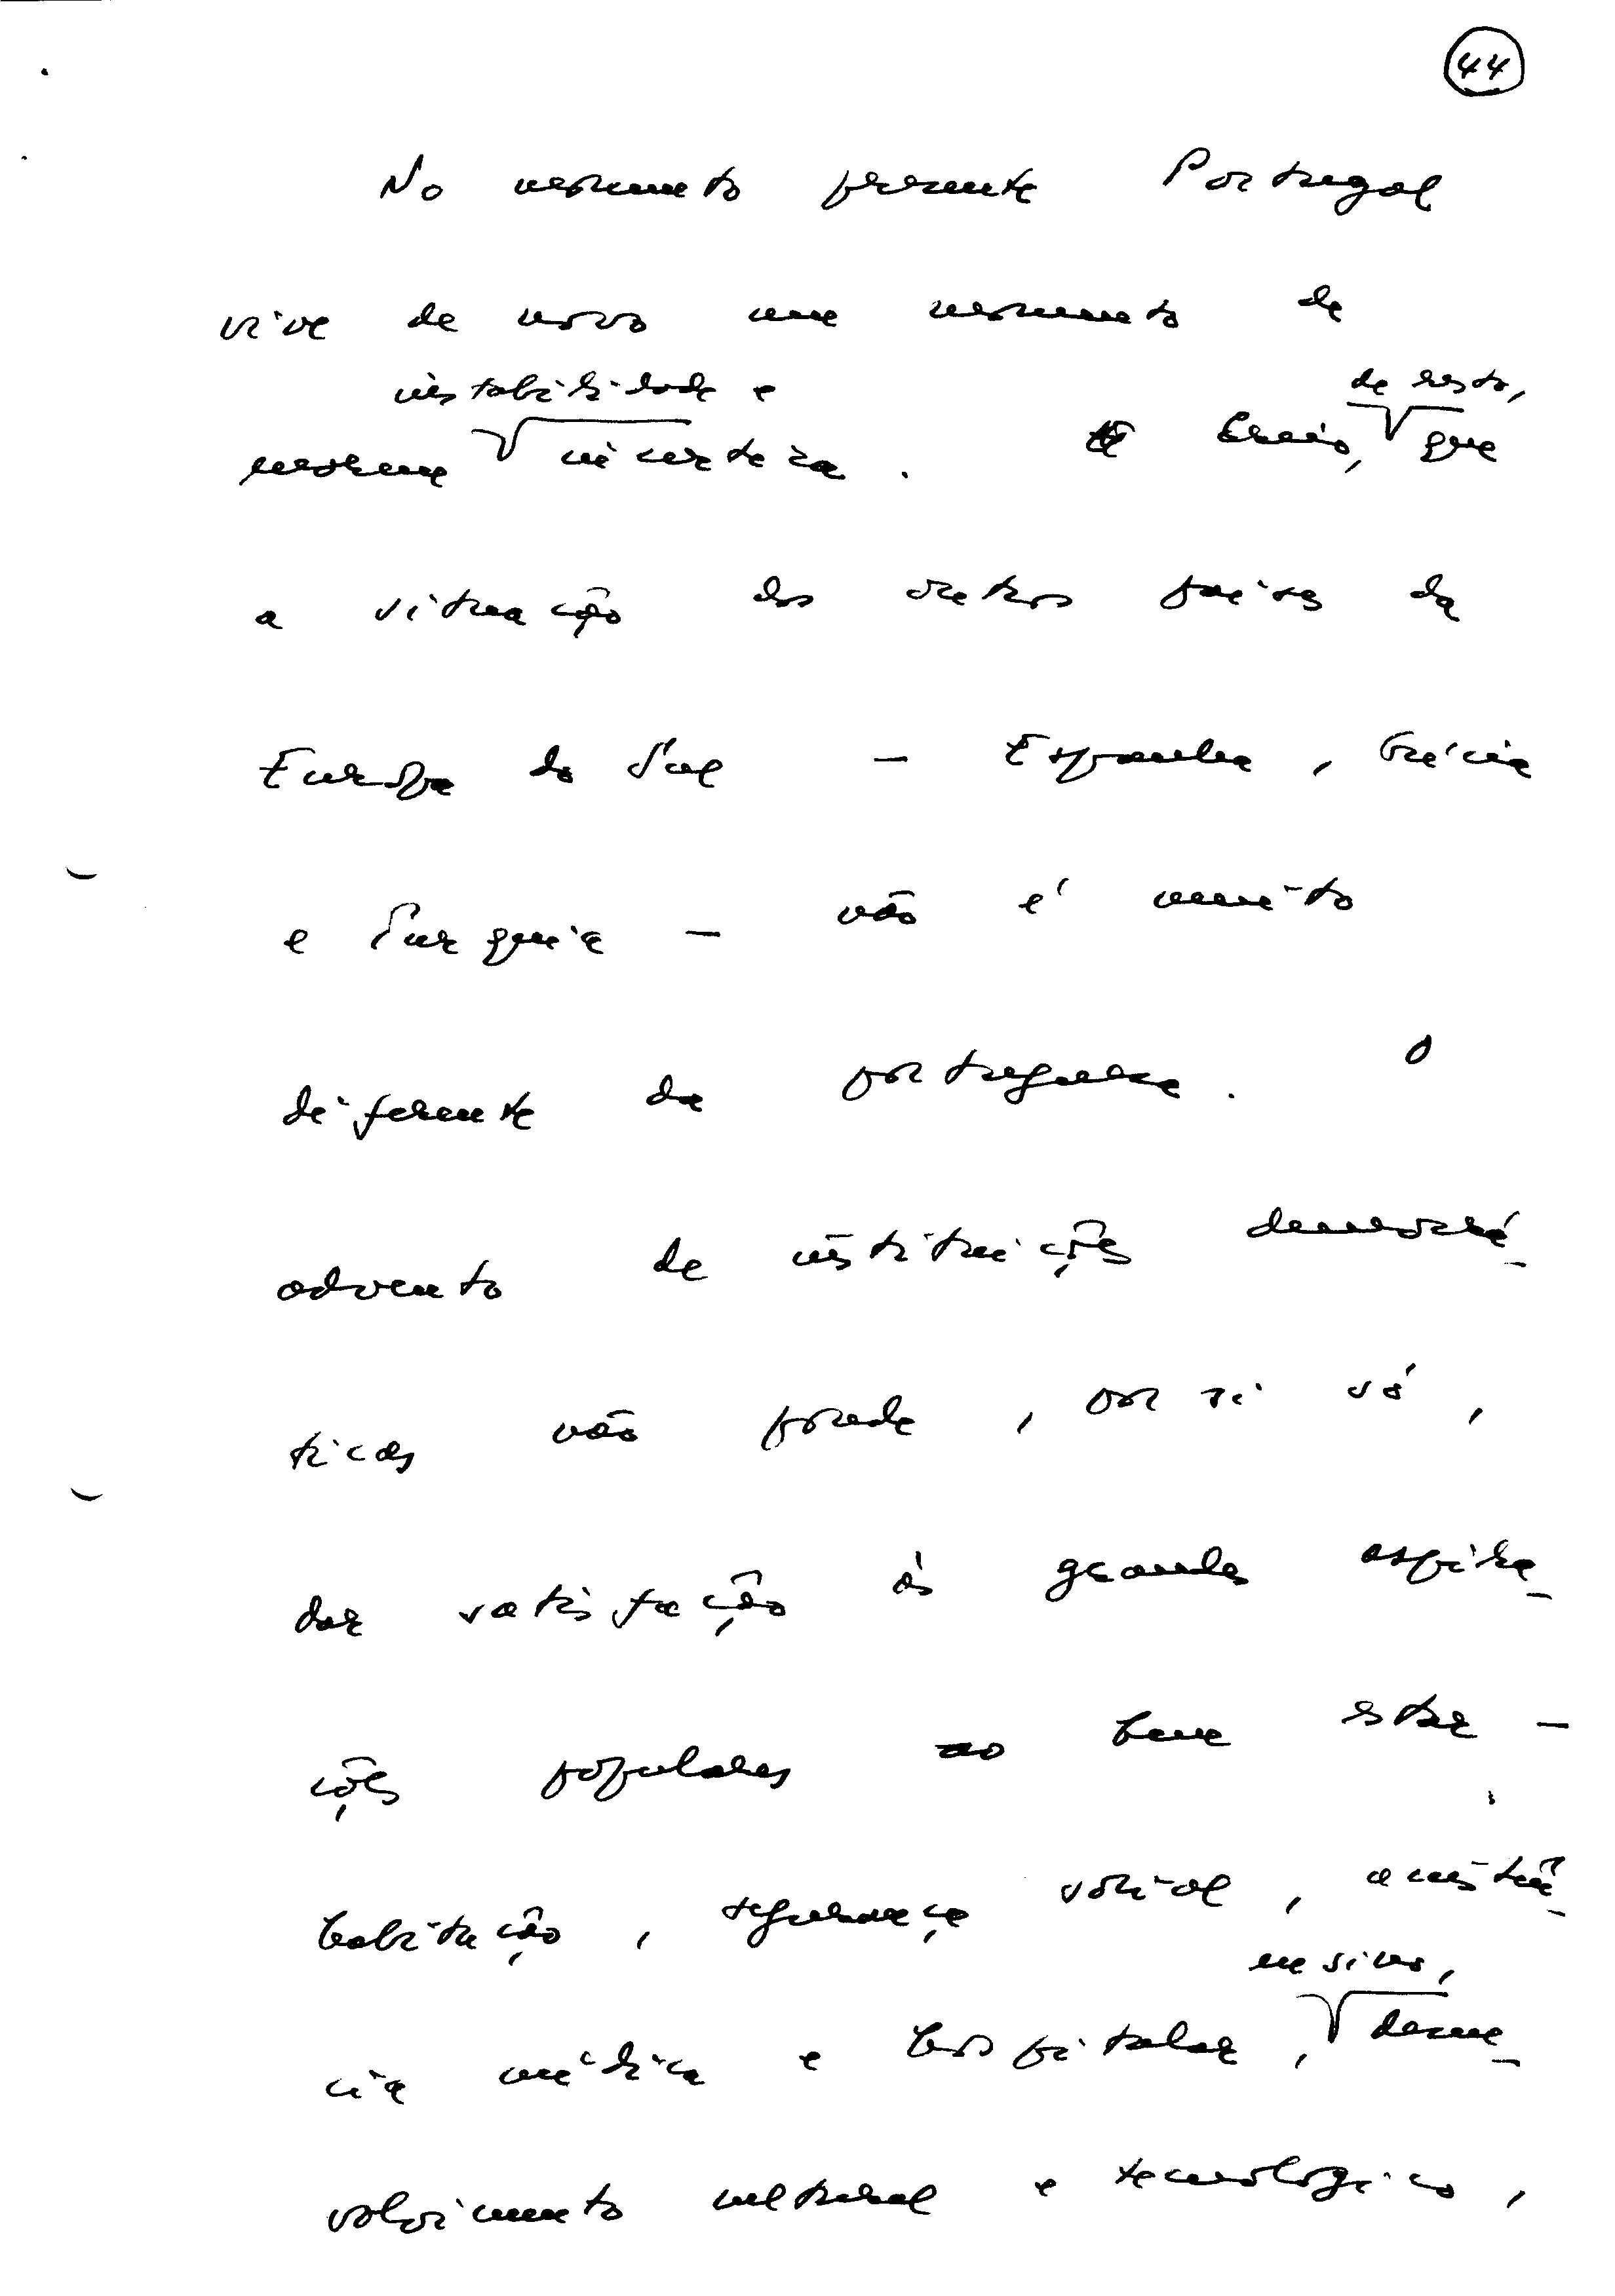 44
No momento presente Portugal
vive de novo um momento de
instabilidade e de resto,
enorme incerteza. Creio, que
a situação dos outros países da
Europa do Sul - Espanha, Grécia
e Turquia - não é muito
diferente da portuguesa. O
advento de instituições democrá-
ticas não pode, por si só,
dar satisfação às grandes aspira-
ções populares ao bem estar -
habitação, segurança social, assistên-
ensino,
cia médica e hospitalar, desen-
volvimento cultural e tecnológico,